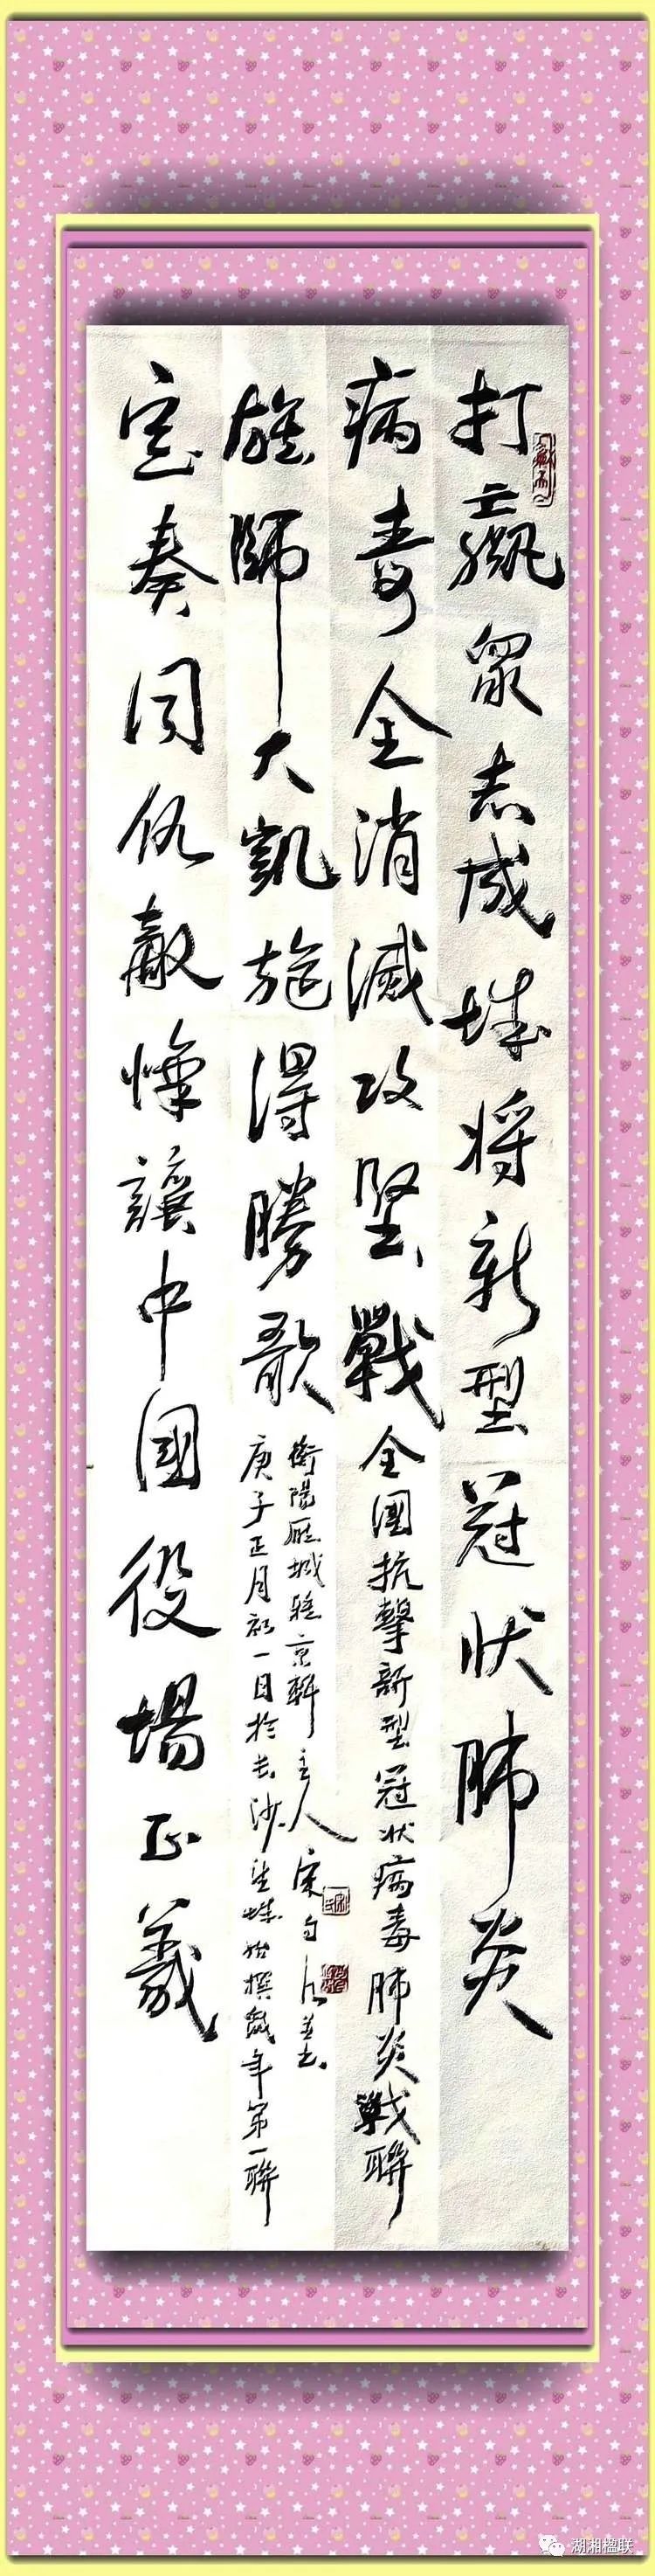 打贏眾志成城将新型冠状肺炎
病毒全消滅攻堅戰
全國抗擊新型冠状病毒肺炎戰聯
定奏同仇敵愾讓中國役場正義
雄師大凱旋得勝歌
庚子正月初一日於长沙望城始撰鼠年第一聯
衡陽雁城雅京軒主人
湖湘楹联